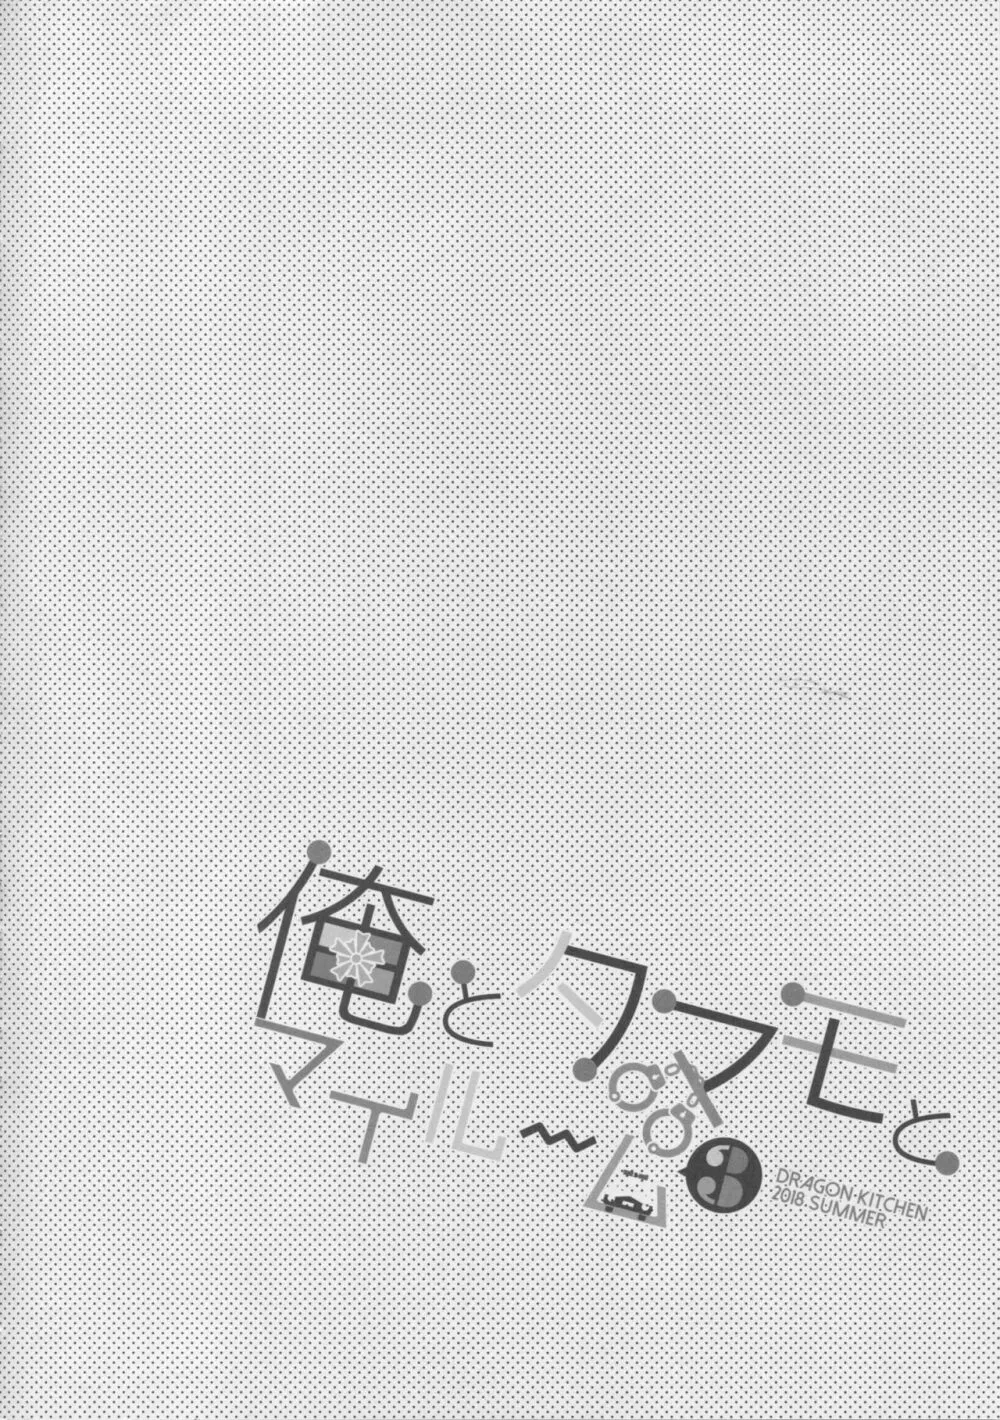 俺とタマモと
マイルーム3
DRAGON KITCHEN
2018 SUMMER